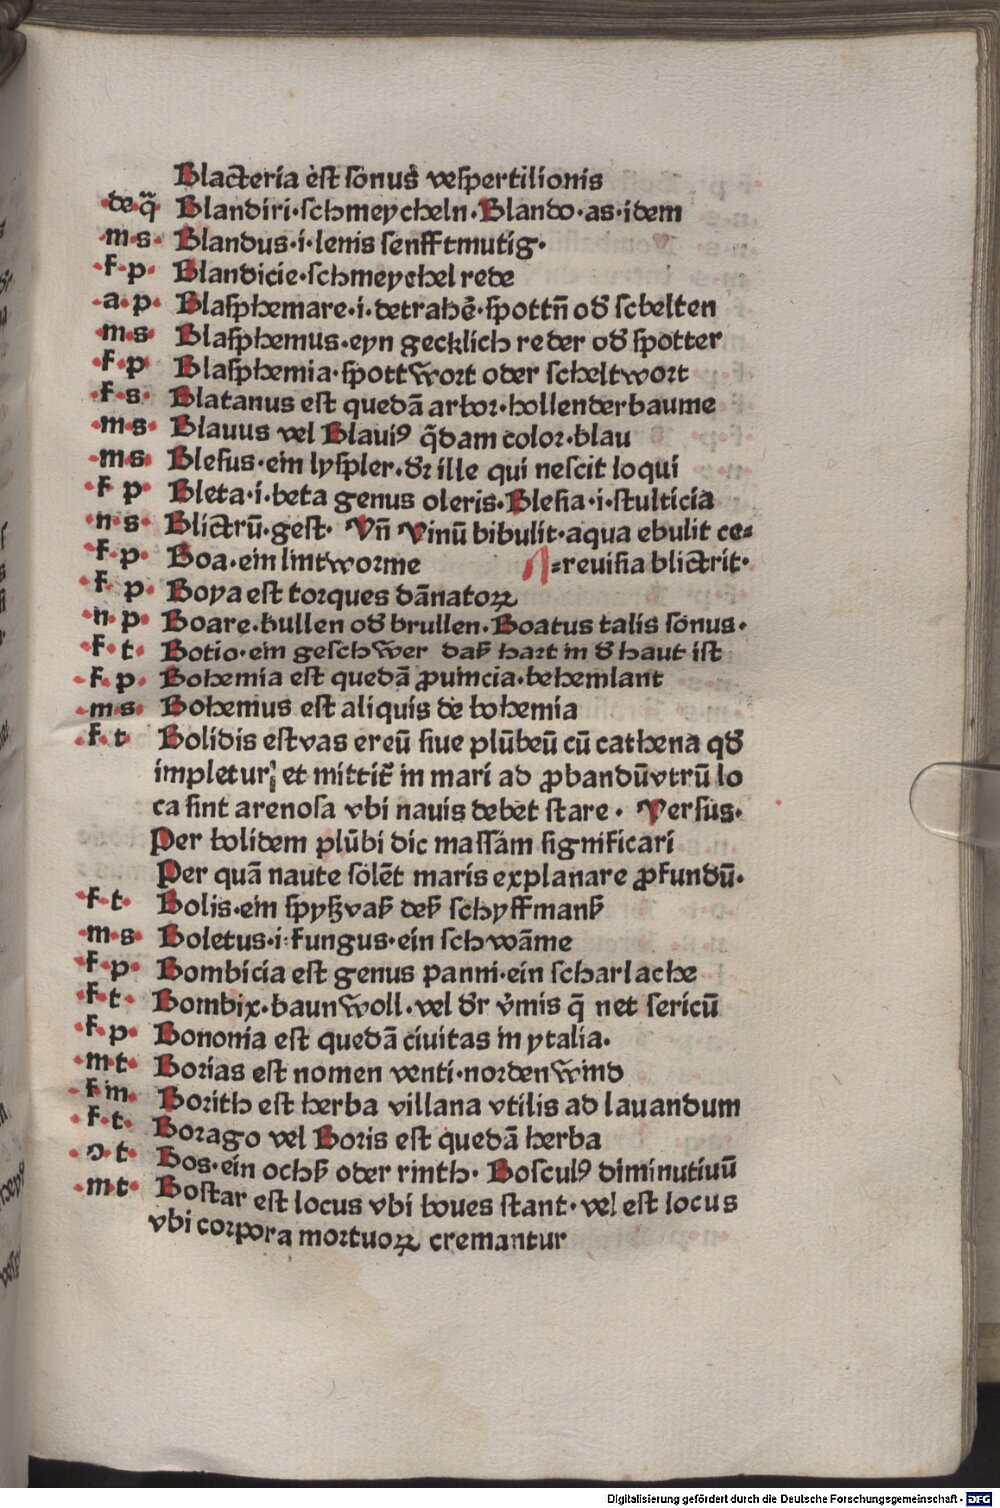 Blacteria est sonus vespertilionis
·de·q̈̃ Blandiri·schmeycheln·Blando·as·idem
·m·s· Blandus·i·lenis senfftmutig·
·f·p· Blandicie·schmeychel rede
·a·p· Blasphemare·i·detrahē·spottn̄ od̕ schelten
·m·s Blasphemus·eyn gecklich reder od̕ spotter
·f·p Blasphemia·spottwort oder scheltwort
·f·s· Blatanus est quedā arbor·hollenderbaume
·m·s· Blauus vel Blauiꝰ q̄dam color·blau
·m·s· Blesus·ein lyspler·d̕r ille qui nescit loqui
·f p· Bleta·i·beta genus oleris·Blesia·i·stulticia
·n·s· Blictrū·gest· Vn̄ Vinū bibulit·aqua ebulit ce⸗
·f·p· Boa·ein lintworme ⸗reuisia blictrit·
·f·p· Boya est torques dānatoꝝ
·n·p· Boare·bullen od̕ brullen·Boatus talis sonus·
·f·t· Botio·ein geschwer daß hart in d̕ haut ist
·f·p· Bohemia est quedā ꝓuincia·behemlant
·m·s· Bohemus est aliquis de bohemia
·f·t Bolidis est vas ereū siue plūbeū cū cathena qd̕
impletur et mittit̕ in mari ad ꝓbandū vtrū lo
ca sint arenosa vbi nauis debet stare· Versus·
Per bolidem plūbi dic massam significari
Per quā naute solēt maris explanare ꝓfundū·
·f·t· Bolis·ein spyßvaß deß schyffmanß
·m·s· Boletus·i·fungus·ein schwāme
·f·p· Bombicia est genus panni·ein scharlache
·f·t· Bombix·baunwoll·vel d̕r v̕mis q̄ net sericū
·f·p· Bononia est quedā ciuitas in ytalia·
·m·t· Borias est nomen venti·nordenwind
·f·m· Borith est herba villana vtilis ad lauandum
·f·t· Borago vel Boris est quedā herba
·o·t· Bos·ein ochß oder rinth· Bosculꝰ diminutiuū
·m·t· Bostar est locus vbi boues stant·vel est locus
vbi corpora mortuoꝝ cremantur
Digitalisierung gefördert durch die Deutsche Forschungsgemeinschaft · DFG